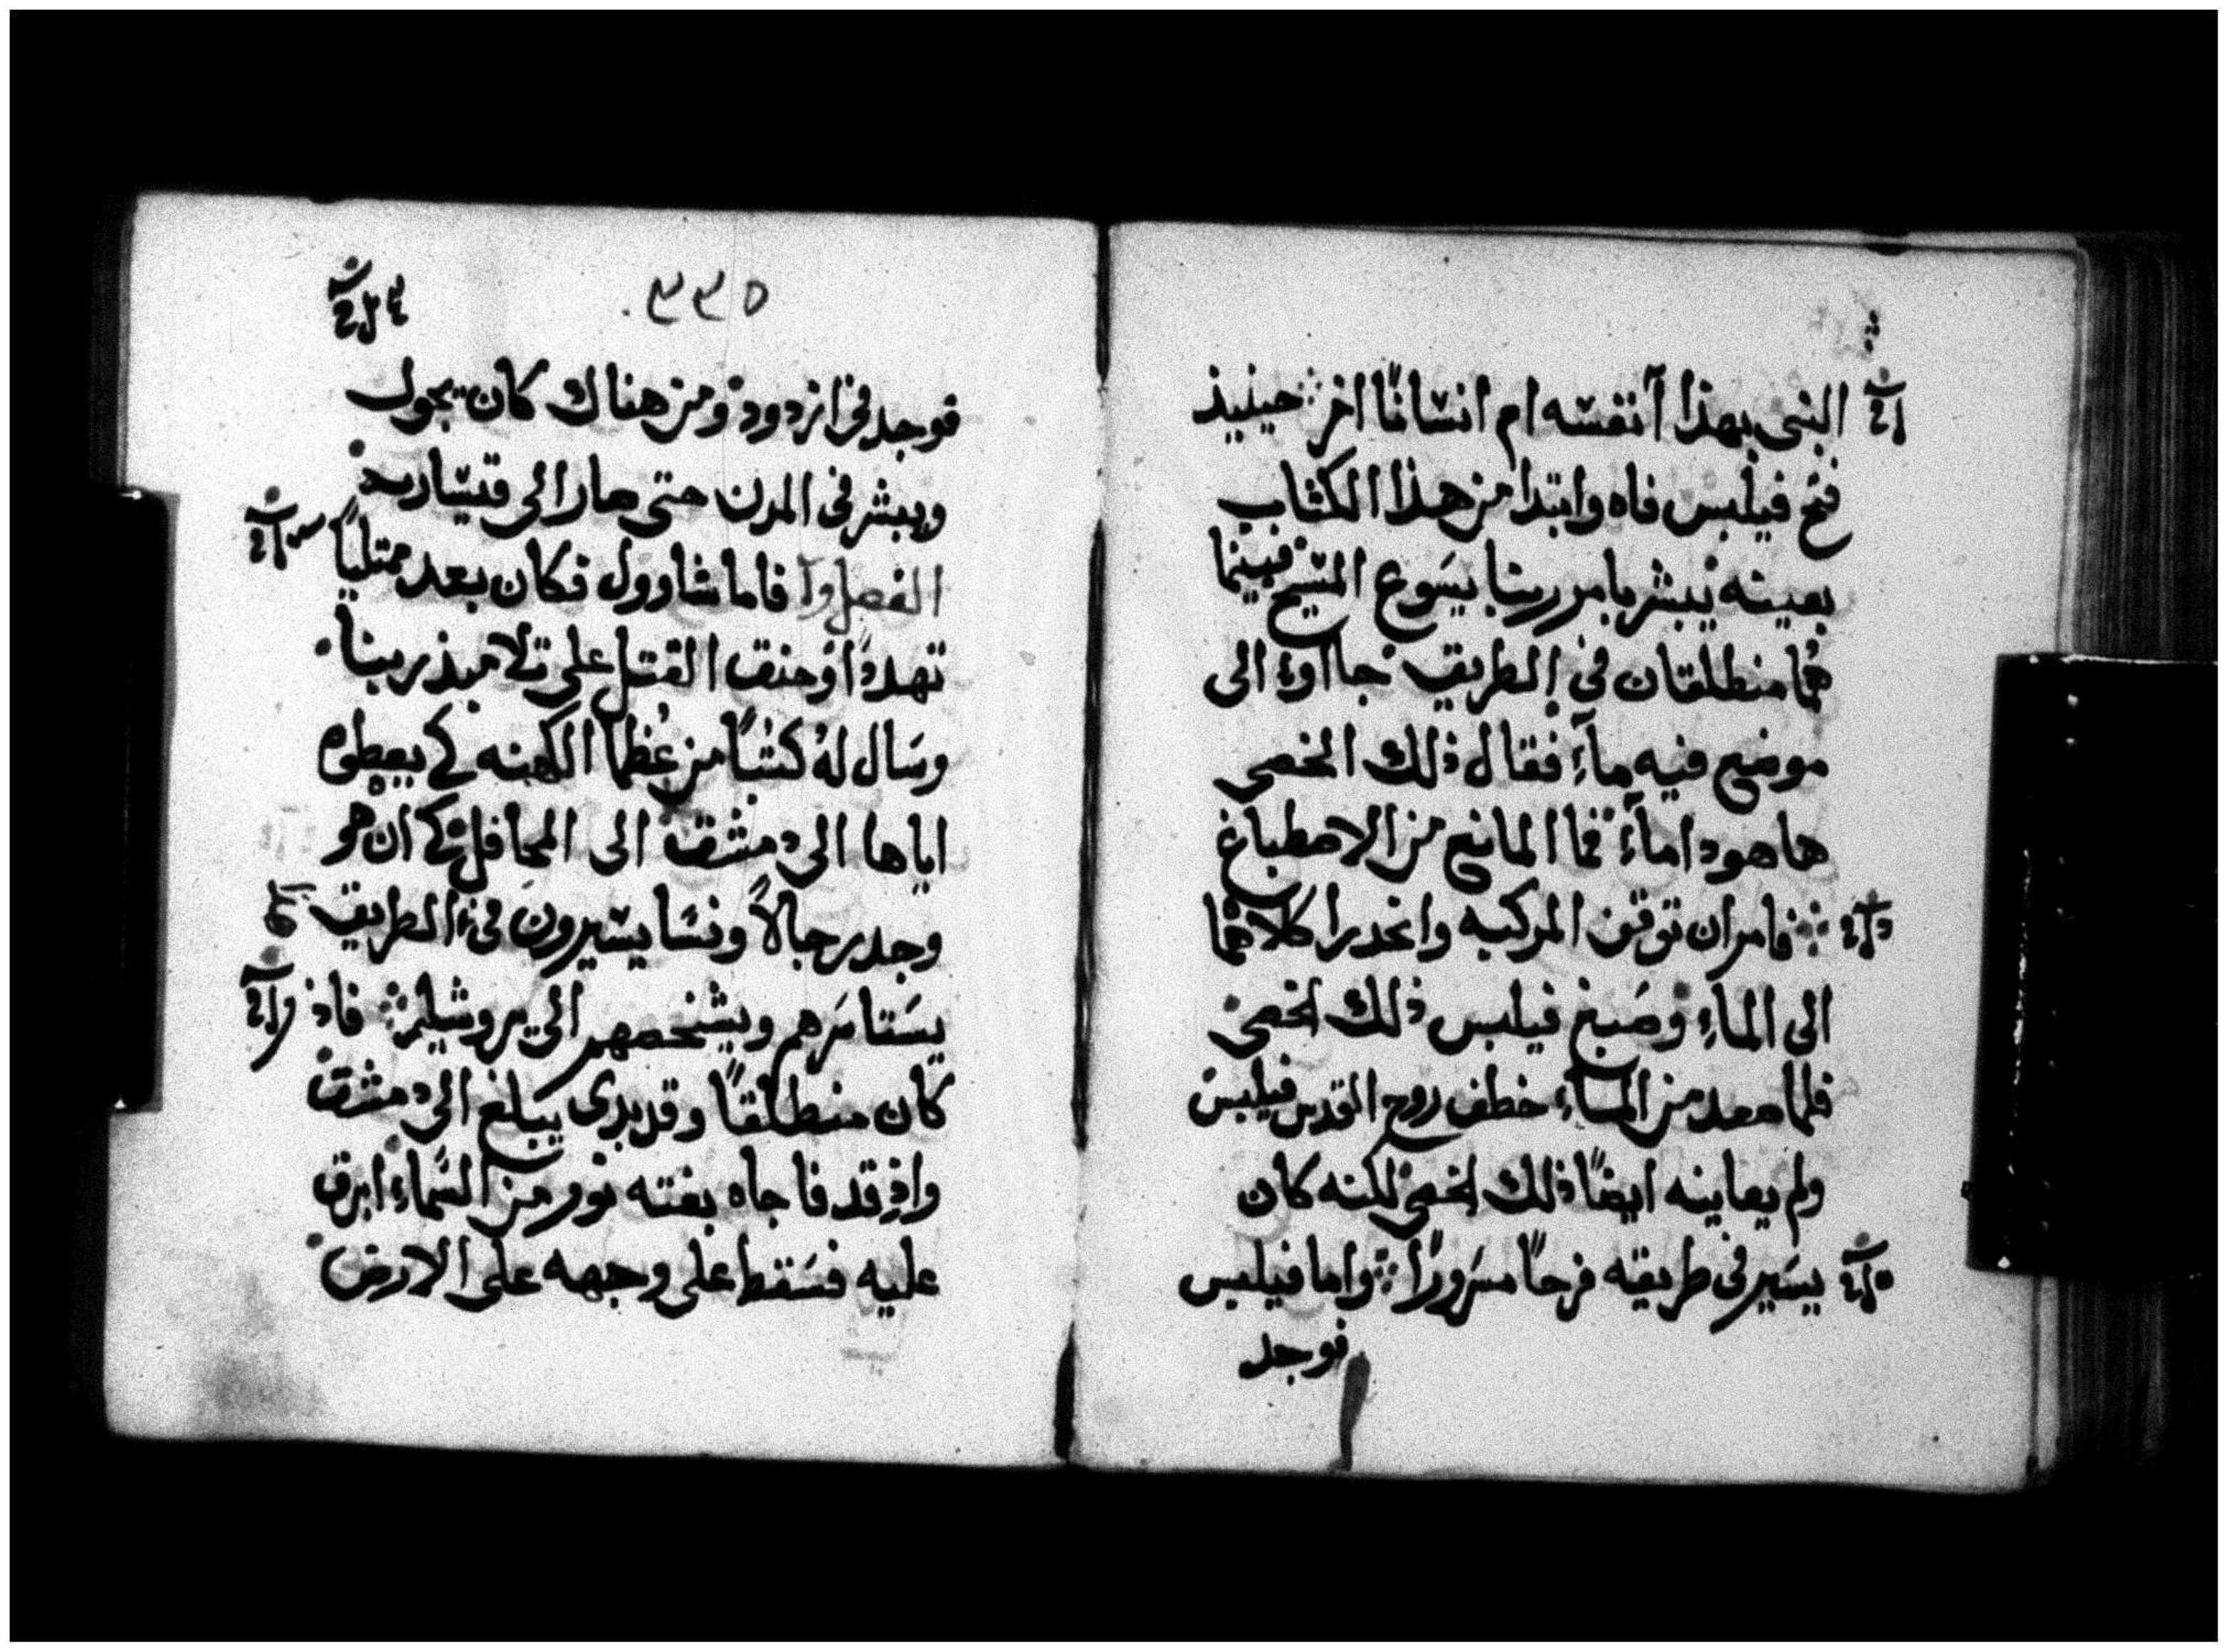 النبى بهذا آنفسه ام انسانًا اخر ∴ حينيذ
فتح فيلبس فاه وابتدا من هذا الكتاب
بعينه يبشر بامر ربنا يسوع المسيح فبينما
هما منطلقان فى الطريق جااوا الى
موضع فيه مآء فقال ذلك الخصى
هاهوذا مآء فما المانع من الاصطباغ
∴ فامر ان توقف المركبه وانحدرا كلاهما
الى الماء وصبغ فيلبس ذلك الخصى
فلما صعد من الماء خطف روح القدس فيلبس
ولم يعاينه ايضًا ذلك الخصى لكنه كان
يسير فى طريقه فرحًا مسرورًا ∴ واما فيلبس
فوجد
٣٣٥
فوجد فى ازدود ومن هناك كان يجول
ويبشر فى المدن حتى صار الى قيساريه
الفصل فاما شاوول فكان بعد ممتليًا
تهددًا وحنق القتل على تلاميذ ربنا
وسال له كتبًا من عظما الكهنه كى يعطوه
اياها الى دمشق الى المحافل كى ان هو
وجد رجالاً ونسا يسيرون فى الطريق
يستاسرهم ويشخصهم الى يروشليم ∴ فاذ
كان منطلقًا وقد بدى يبلغ الى دمشق
واذ قد فاجاه بغته نور من السماء ابرق
عليه فسقط على وجهه على الارض